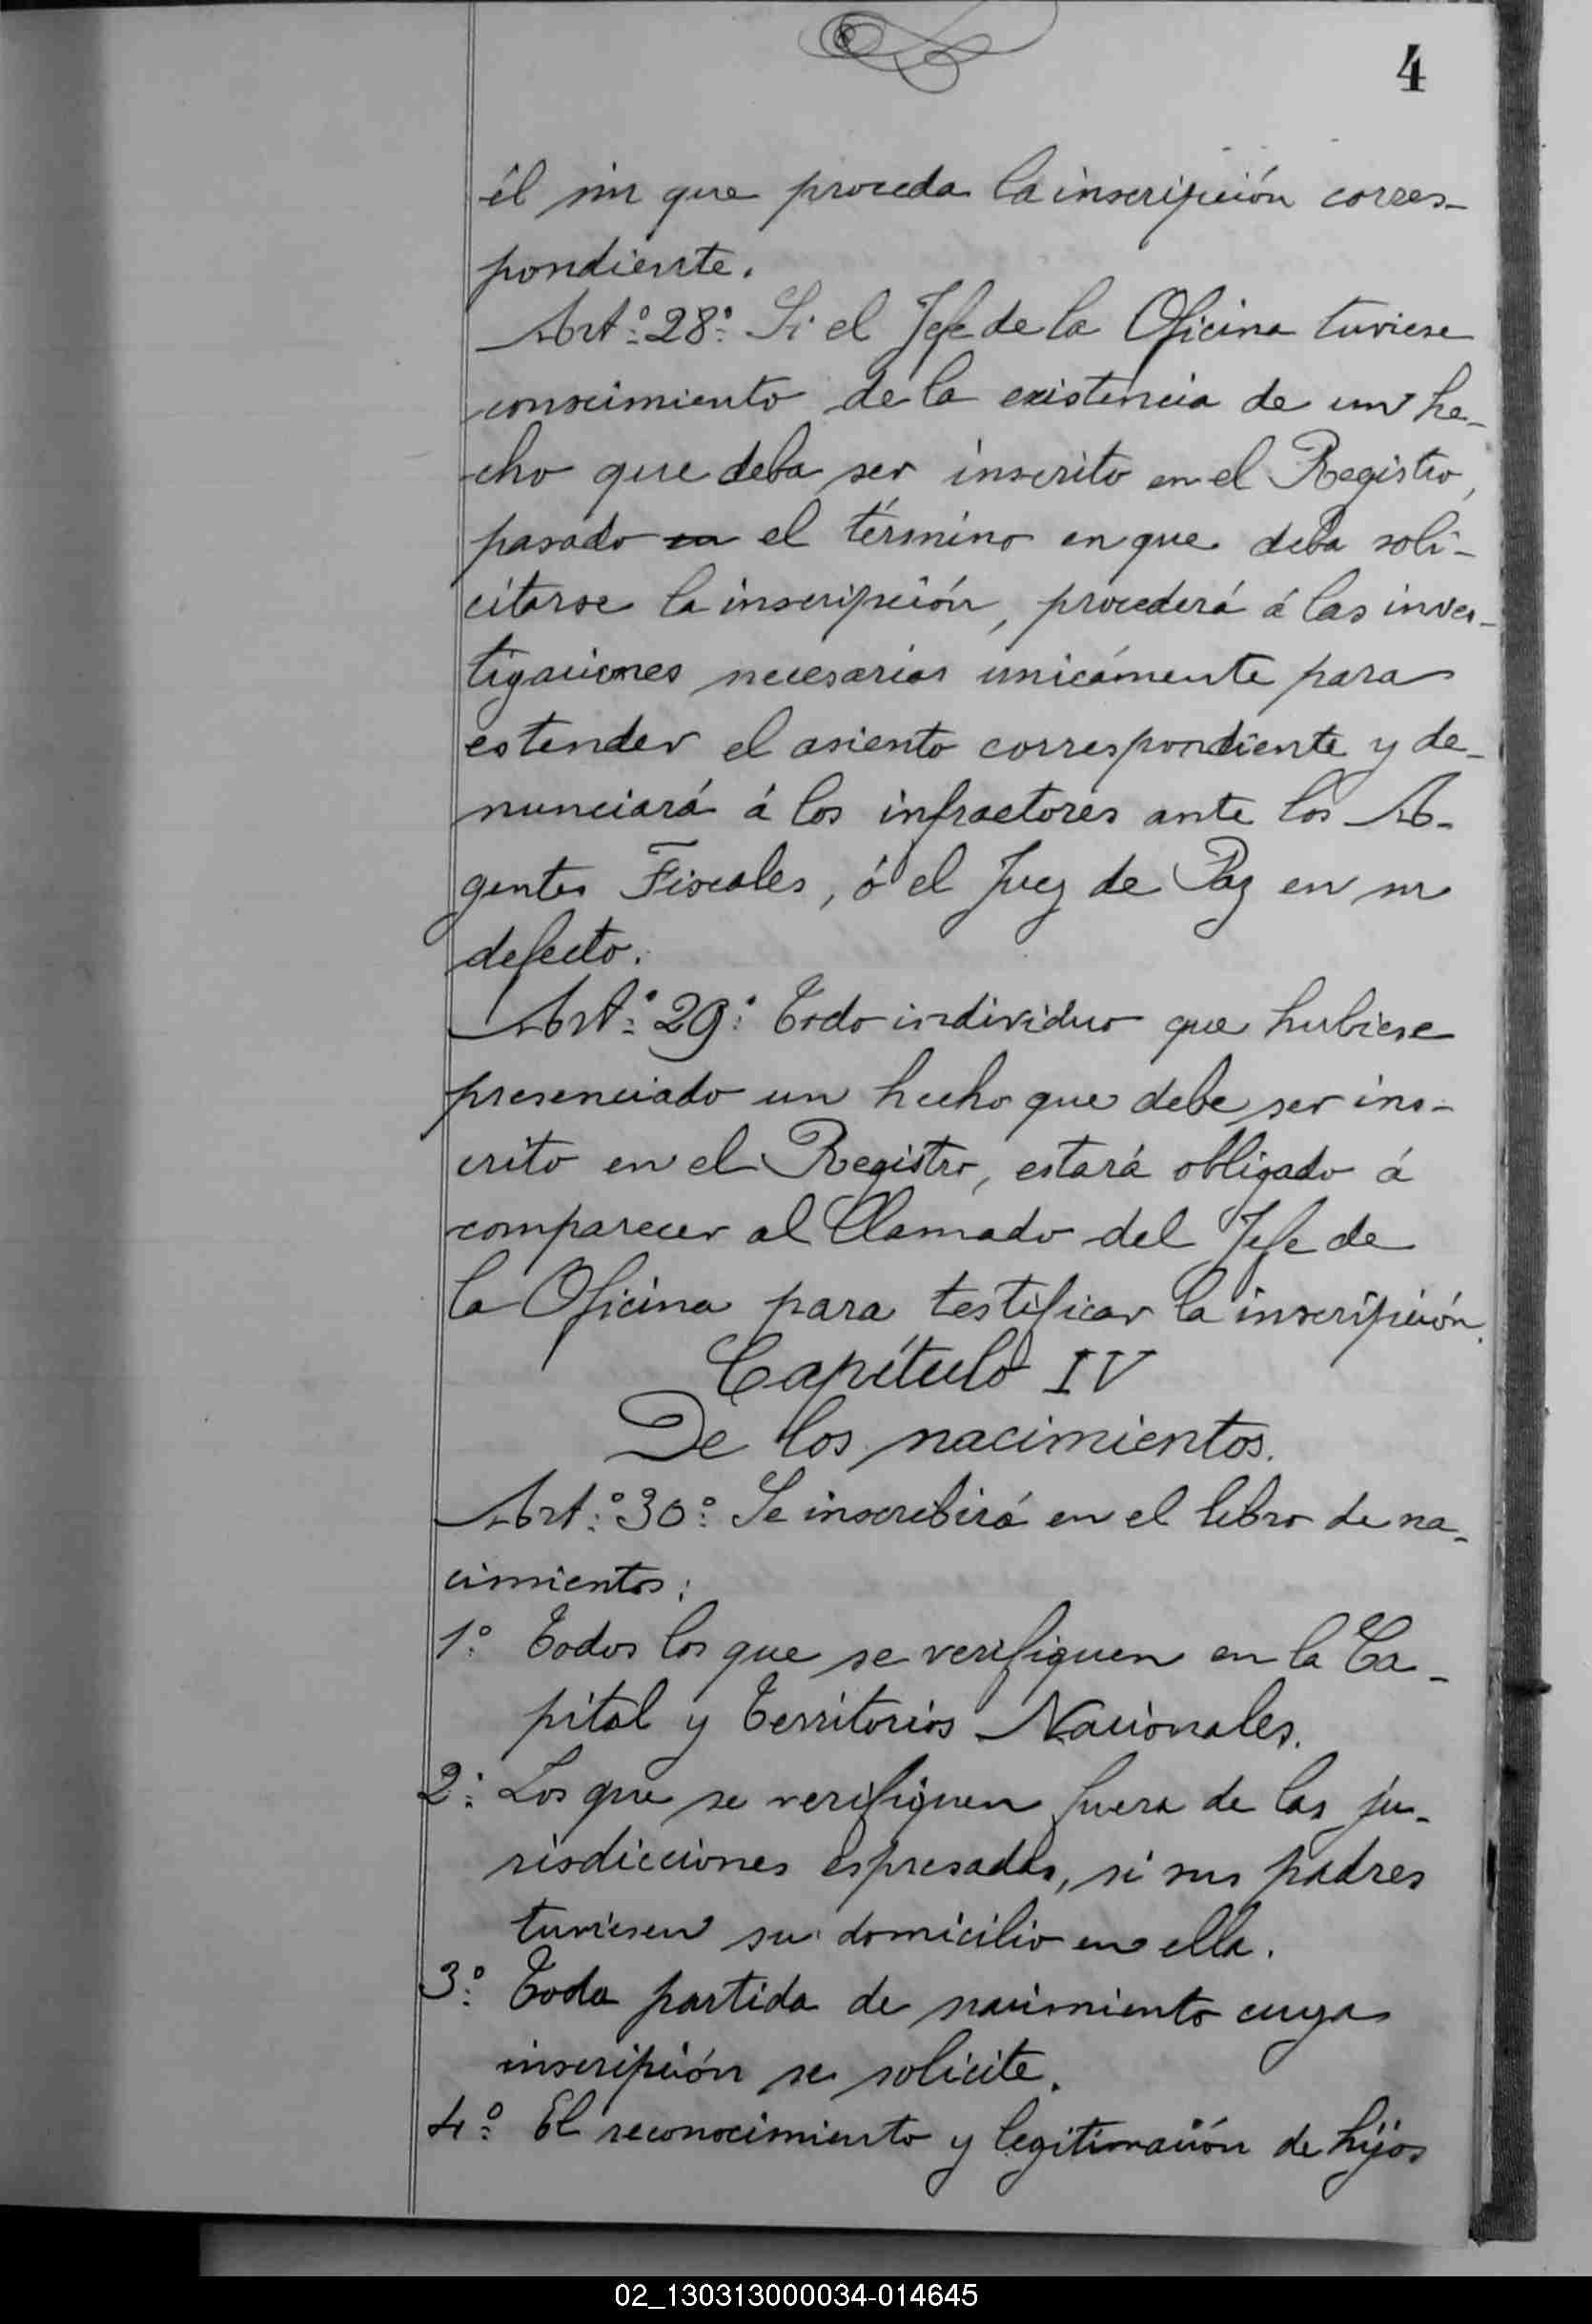 4
él sin que proceda la inscripción corres-
pondiente.
Art.º 28º Si el Jefe de la Oficina tuviese
conocimiento de la existencia de un he-
cho que deba ser inscrito en el Registro,
pasado en el término en que deba soli-
citarse la inscripción, procederá á las inves-
tigaciones necesarias unicámente para
estender el asiento correspondiente y de-
nunciará á los infractores ante los A-
gentes Fiscales, ó el Juez de Paz en su
defecto.
Art.º 29º Todo individuo que hubiese
presenciado un hecho que debe ser ins-
crito en el Registro, estará obligado á
comparecer al llamado del Jefe de
la Oficina para testificar la inscripción.
Capítulo IV
De los nacimientos.
Art.º 30º Se inscribirá en el libro de na-
cimientos:
1º Todos los que se verifiquen en la Ca-
pital y Territorios Nacionales.
2º Los que se verifiquen fuera de las ju-
risdicciones espresadas, si sus padres
tuviesen su domicilio en ella.
3º Toda partida de nacimiento cuya
inscripción se solicite.
4º El reconocimiento y legitimación de hijos
02_130313000034-014645